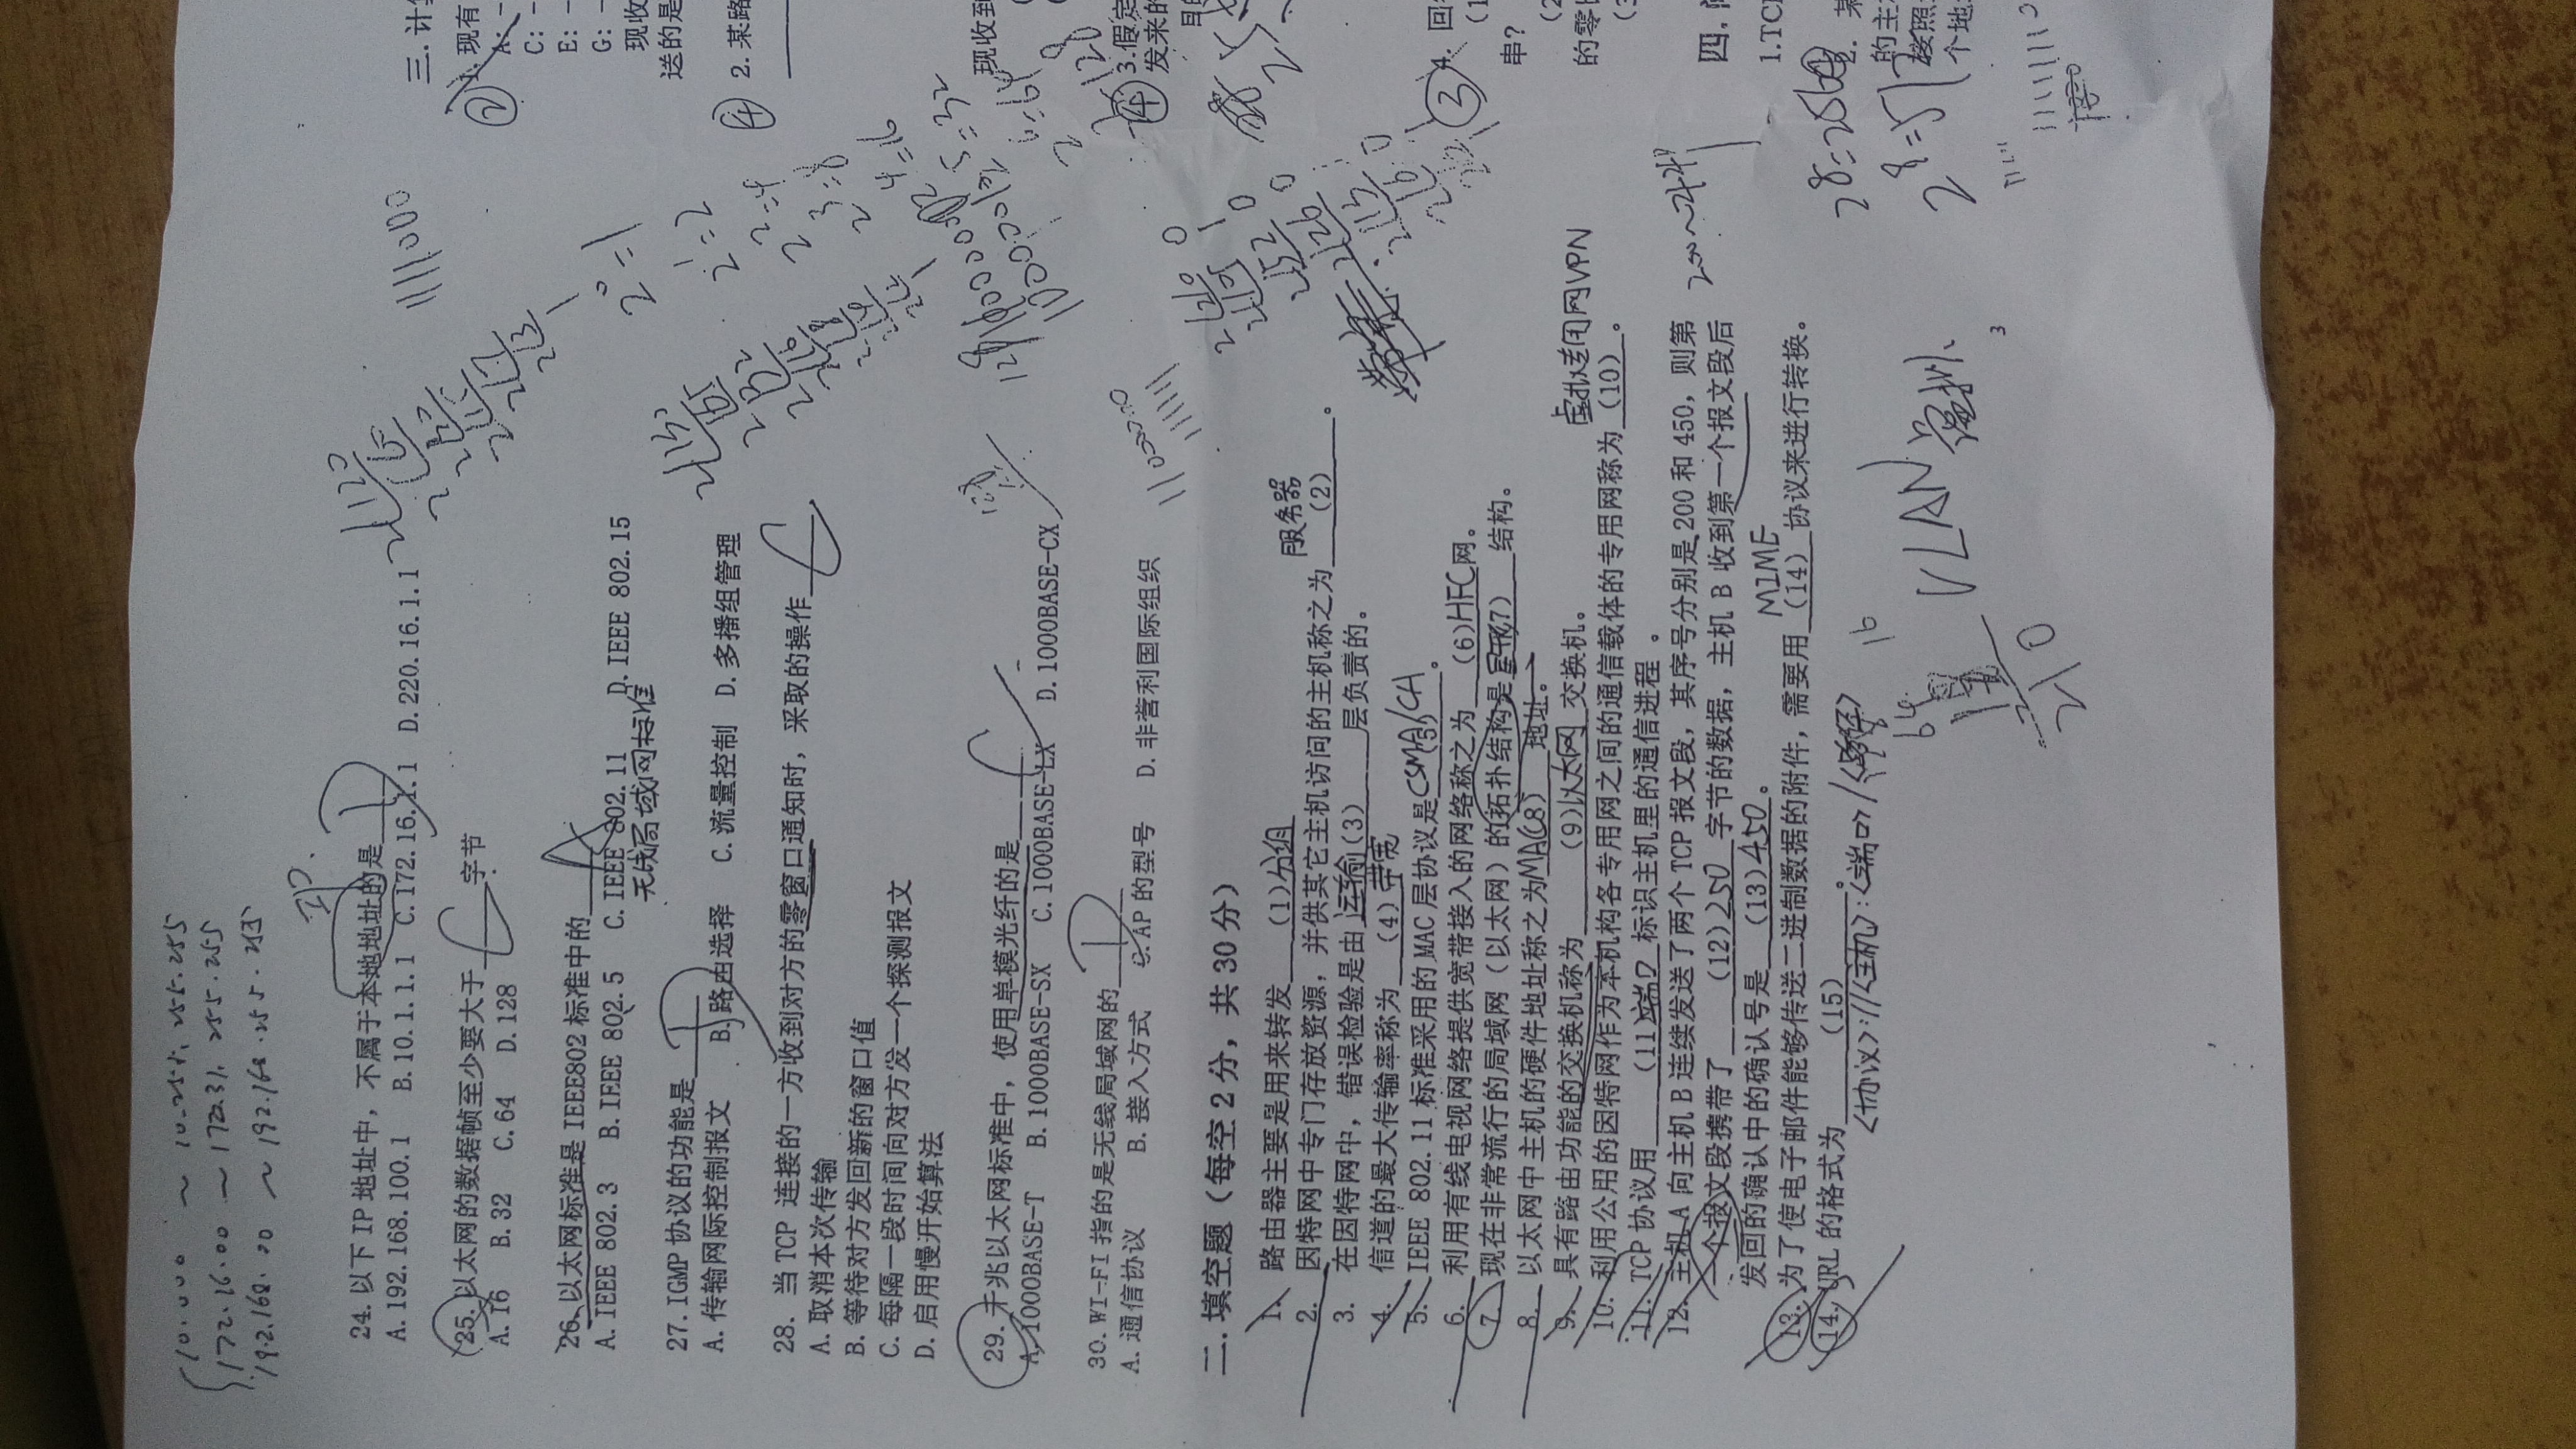 10.0.0.0 ~ 10.255.255.255
172.16.0.0 ~ 172.31.255.255
192.168.0.0 ~ 192.168.255.255
IP.
24.以下IP地址中，不属于本地地址的是 D
A.192.168.100.1 B.10.1.1.1 C.172.16.1.1 D.220.16.1.1
25.以太网的数据帧至少要大于 C 字节
A.16 B.32 C.64 D.128
26.以太网标准是IEEE802标准中的 A
A.IEEE 802.3 B.IEEE 802.5 C.IEEE 802.11 D.IEEE 802.15
无线局域网标准
27.IGMP协议的功能是 D
A.传输网际控制报文 B.路由选择 C.流量控制 D.多播组管理
28. 当TCP 连接的一方收到对方的零窗口通知时，采取的操作 C
A.取消本次传输
B.等待对方发回新的窗口值
C.每隔一段时间向对方发一个探测报文
D.启用慢开始算法
29.千兆以太网标准中，使用单模光纤的是 C
A.1000BASE-T B.1000BASE-SX C.1000BASE-LX D.1000BASE-CX
30.WI-FI指的是无线局域网的 D
A.通信协议 B.接入方式 C.AP的型号 D.非营利国际组织
二.填空题（每空2分，共30分）
1. 路由器主要是用来转发 (1)分组
服务器
2. 因特网中专门存放资源，并供其它主机访问的主机称之为 (2) 。
3. 在因特网中，错误检验是由运输(3) 层负责的。
4. 信道的最大传输率称为 (4)带宽
5. IEEE 802.11标准采用的MAC层协议是CSMA/CA 。
6. 利用有线电视网络提供宽带接入的网络称之为 (6)HFC网。
7. 现在非常流行的局域网（以太网）的拓扑结构是星形(7) 结构。
8. 以太网中主机的硬件地址称之为MAC(8) 地址。
9. 具有路由功能的交换机称为 (9)以太网 交换机。
虚拟专用网VPN
10. 利用公用的因特网作为本机构各专用网之间的通信载体的专用网称为 (10) 。
11. TCP协议用 (11)端口 标识主机里的通信进程 。
12. 主机A向主机B连续发送了两个TCP报文段，其序号分别是200和450，则第
一个报文段携带了 (12)250 字节的数据，主机B收到第一个报文段后
发回的确认中的确认号是 (13)450 。
MIME
13. 为了使电子邮件能够传送二进制数据的附件，需要用 (14) 协议来进行转换。
14. URL的格式为 (15) 。
<协议>://<主机>:<端口>/<路径>
16
64
210
VLAN 虚拟
3
1111000
2⁰=1
2¹=2
2²=4
2³=8
2⁴=16
2⁵=32
2⁶=64
128
2⁸=256
2⁸=512
三.计
② 1.现有
A: -
C: -
E: -
G: -
现收
送的是
④ 2.某路
现收到
④ 3.假定
发来的
目的
③ 4. 回
(1
串？
(2
的零
(3
四.
1.TC
2. 某
的主
按照
个地